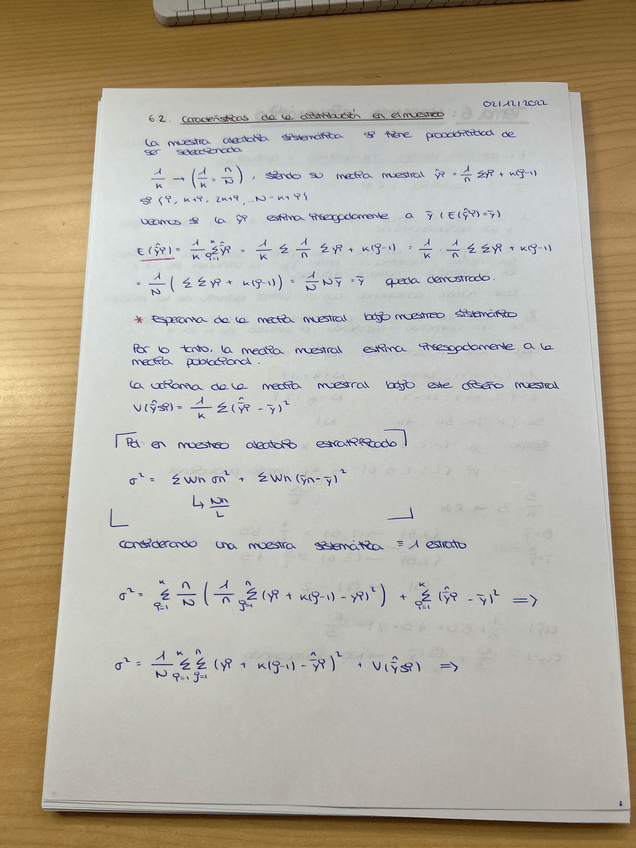 02/12/2022
6.2. Características de la distribución en el muestreo
La muestra aleatoria sistemática si tiene probabilidad de
ser seleccionada
1/k → (1/k = n/N), siendo su media muestral ŷi = 1/n Σyi + k(j-1)
si {i, k+i, 2k+i, ... N-k+i}
Veamos si la ŷi estima insesgadamente a ȳ (E(ŷi)=ȳ)
E(ŷi) = 1/k Σŷi = 1/k Σ 1/n Σyi + k(j-1) = 1/k · 1/n ΣΣyi + k(j-1)
= 1/N (ΣΣyi + k(j-1)) = 1/N Nȳ = ȳ queda demostrado.
* Esperanza de la media muestral bajo muestreo sistemático
Por lo tanto, la media muestral estima insesgadamente a la
media poblacional.
La varianza de la media muestral bajo este diseño muestral
V(ŷsi) = 1/k Σ(ŷi - ȳ)²
en muestreo aleatorio estratificado
σ² = ΣWh σh² + ΣWh (ȳh - ȳ)²
↳ Nh/L
considerando una muestra sistemática ≡ 1 estrato
σ² = Σ n/N (1/n Σ(yi + k(j-1) - yi)²) + Σ(ŷi - ȳ)² =>
σ² = 1/N ΣΣ (yi + k(j-1) - ŷi)² + V(ŷsi) =>